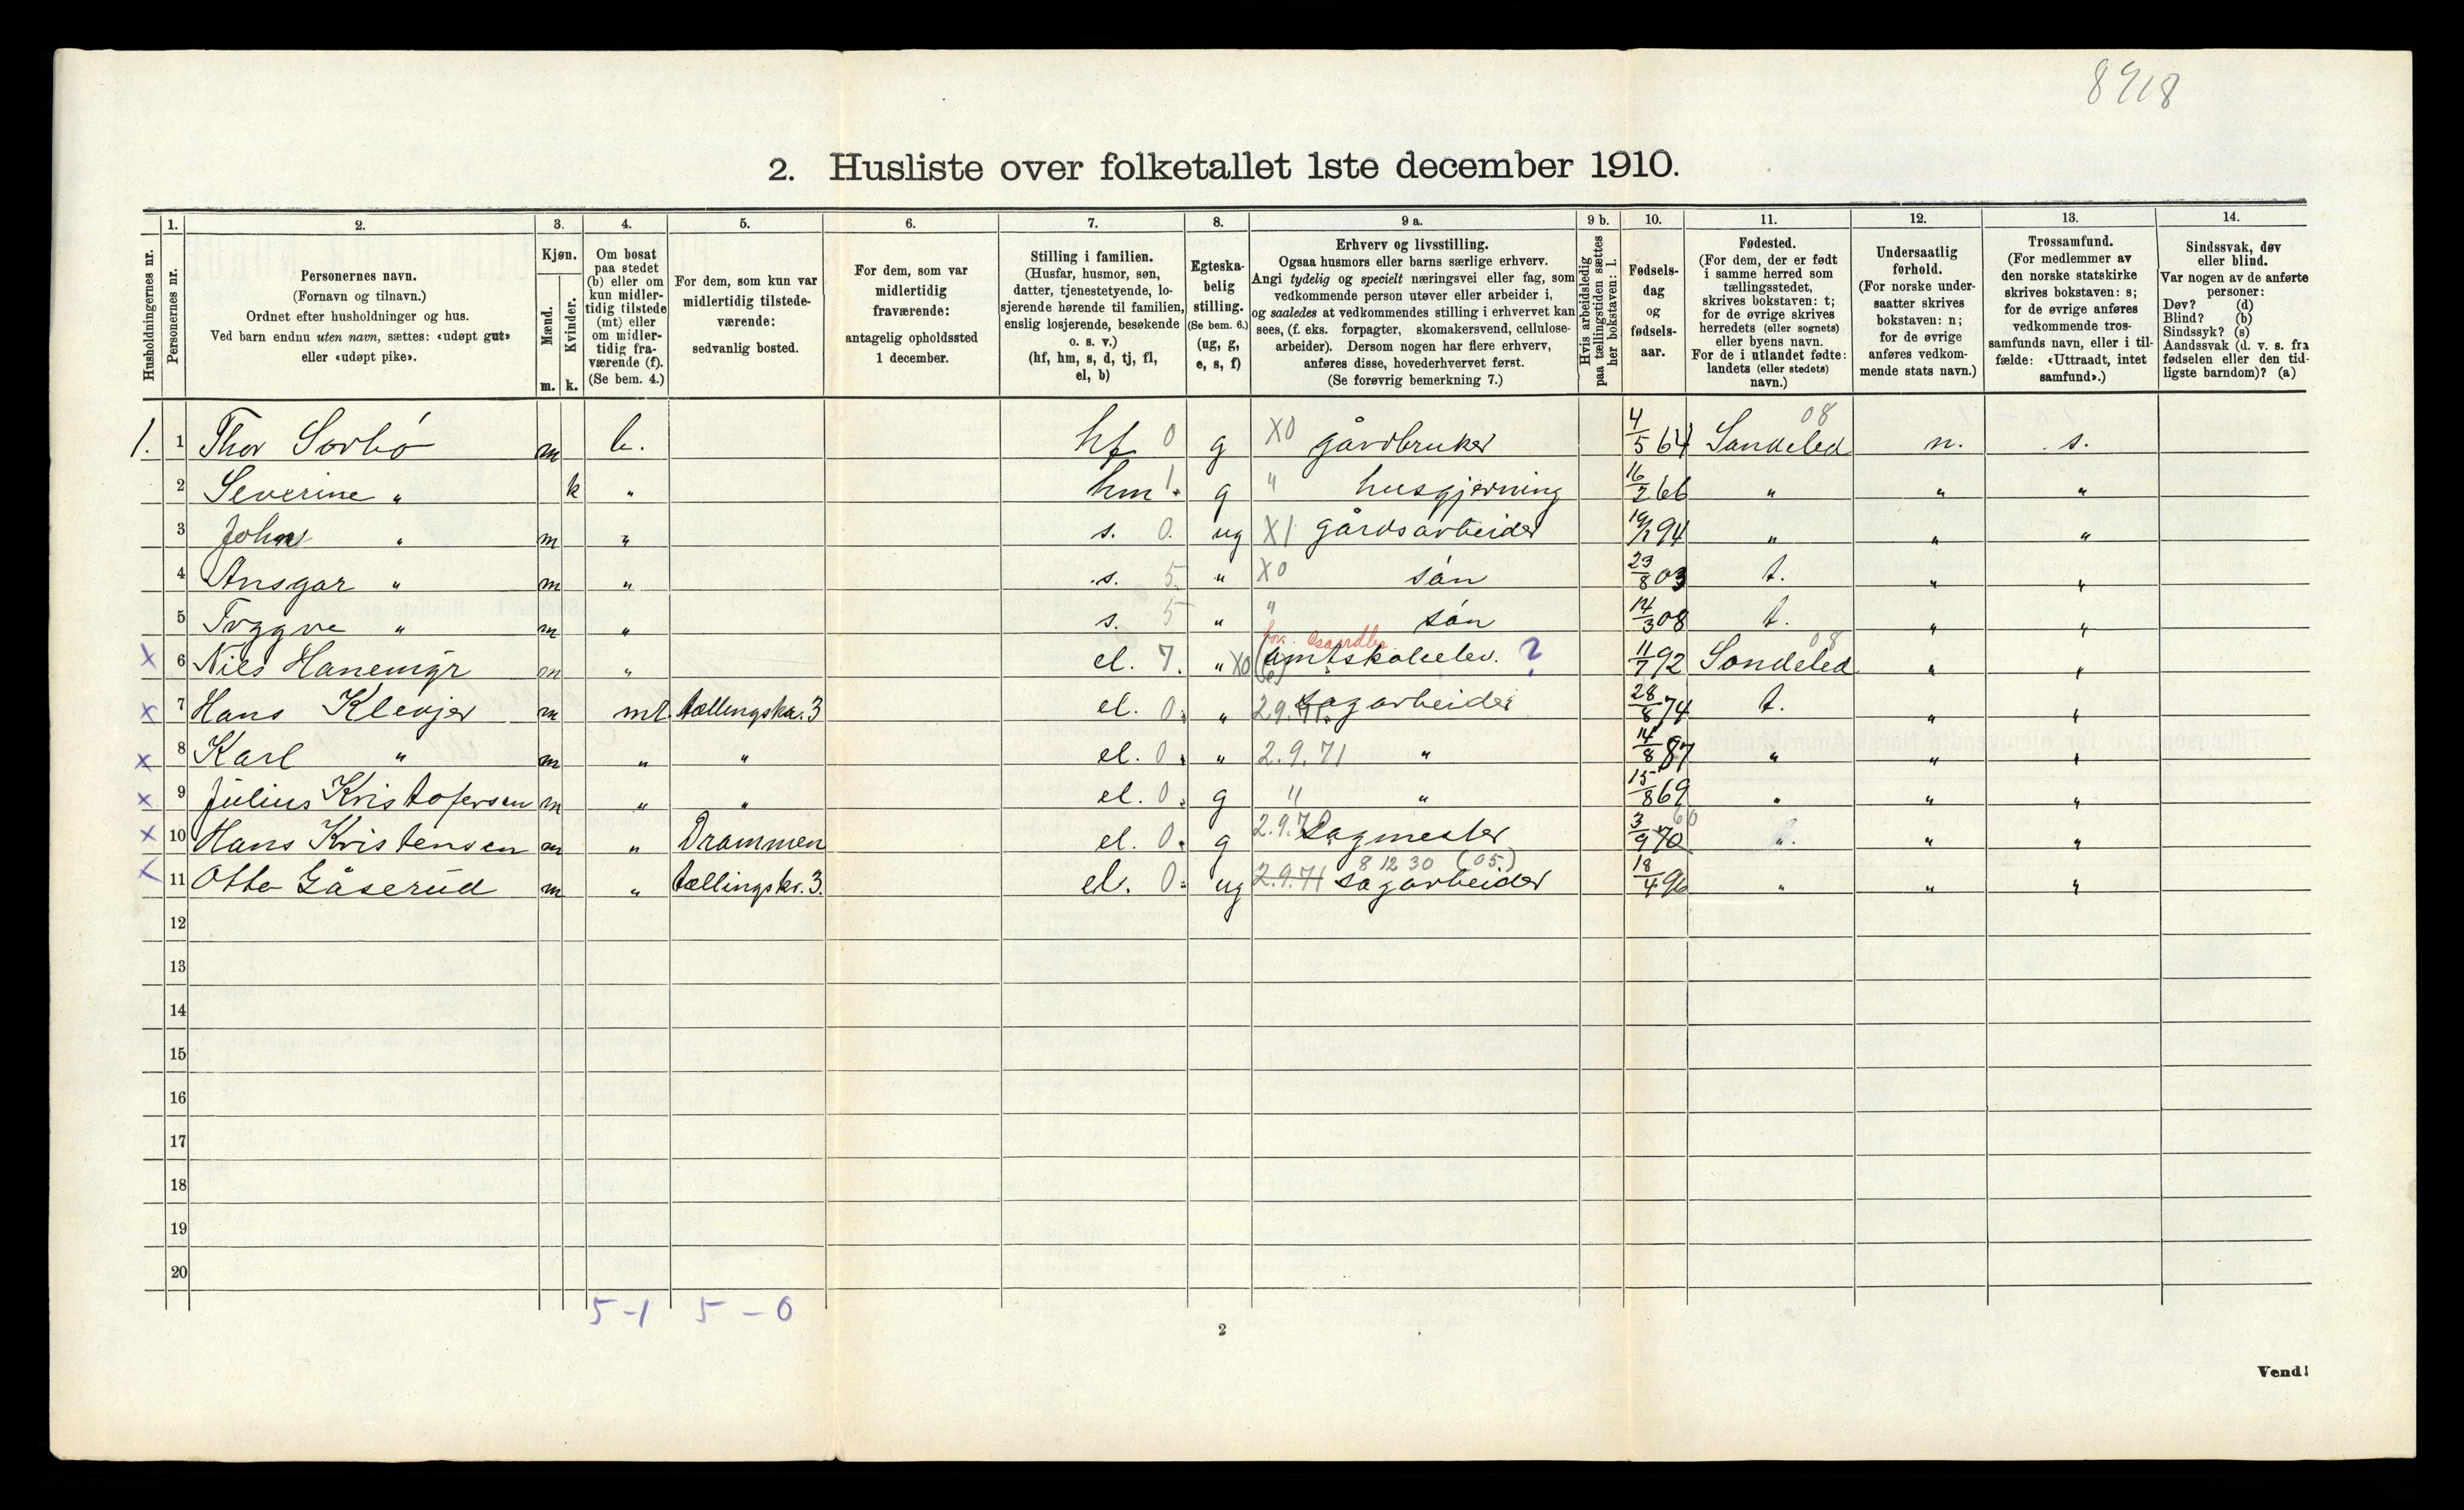 8918
2. Husliste over folketallet 1ste december 1910.
Husholdningernes nr.
1.
Personernes nr.
2.
Personernes navn.
(Fornavn og tilnavn.)
Ordnet efter husholdninger og hus.
Ved barn endnu uten navn, sættes: «udøpt gut»
eller «udøpt pike».
3.
Kjøn.
Mænd.
Kvinder.
m. k.
4.
Om bosat
paa stedet
(b) eller om
kun midler-
tidig tilstede
(mt) eller
om midler-
tidig fra-
værende (f).
(Se bem. 4.)
5.
For dem, som kun var
midlertidig tilstede-
værende:
sedvanlig bosted.
6.
For dem, som var
midlertidig
fraværende:
antagelig opholdssted
1 december.
7.
Stilling i familien.
(Husfar, husmor, søn,
datter, tjenestetyende, lo-
sjerende hørende til familien,
enslig losjerende, besøkende
o. s. v.)
(hf, hm, s, d, tj, fl,
el, b)
8.
Egteska-
belig
stilling.
(Se bem. 6.)
(ug, g,
e, s, f)
9 a.
Erhverv og livsstilling.
Ogsaa husmors eller barns særlige erhverv.
Angi tydelig og specielt næringsvei eller fag, som
vedkommende person utøver eller arbeider i,
og saaledes at vedkommendes stilling i erhvervet kan
sees, (f. eks. forpagter, skomakersvend, cellulose-
arbeider). Dersom nogen har flere erhverv,
anføres disse, hovederhvervet først.
(Se forøvrig bemerkning 7.)
9 b.
Hvis arbeidsledig
paa tællingstiden sættes
her bokstaven: l.
10.
Fødsels-
dag
og
fødsels-
aar.
11.
Fødested.
(For dem, der er født
i samme herred som
tællingsstedet,
skrives bokstaven: t;
for de øvrige skrives
herredets (eller sognets)
eller byens navn.
For de i utlandet fødte:
landets (eller stedets)
navn.)
12.
Undersaatlig
forhold.
(For norske under-
saatter skrives
bokstaven: n;
for de øvrige
anføres vedkom-
mende stats navn.)
13.
Trossamfund.
(For medlemmer av
den norske statskirke
skrives bokstaven: s;
for de øvrige anføres
vedkommende tros-
samfunds navn, eller i til-
fælde: «Uttraadt, intet
samfund».)
14.
Sindssvak, døv
eller blind.
Var nogen av de anførte
personer:
Døv? (d)
Blind? (b)
Sindssyk? (s)
Aandssvak (d. v. s. fra
fødselen eller den tid-
ligste barndom)? (a)
1. 1 Thor Sorbö m b. hf 0 g X0 gårdbruker 4/5 64 Sandeled 08 n. s.
2 Severine " k " hm 1. g " husgjerning 16/2 66 " " "
3 John " m " s. 0. ug X1 gårdsarbeider 94 " " "
4 Ansgar " m " s. 5. " X0 sön 23/8 03 t. " "
5 Tryggve " m " s. 5 " " sön 14/3 08 t. " "
x 6 Nils Hanemyr m " el. 7. " X0 amtskoleelev. ? 11/7 92 Söndeled 08 " "
x 7 Hans Klevjer m mt. tællingskr. 3 el. 0. " 2.9.71. sagarbeider 28/8 74 t. " "
x 8 Karl " m " " el. 0. " 2.9.71 " 14/8 87 " " "
x 9 Julius Kristofersen m " " el. 0. g " " 15/8 69 " " "
x 10 Hans Kristensen m " Drammen el. 0. g 2.9.70 sagmester 3/9 70 60 " " "
x 11 Otto Gåserud m " tællingskr. 3. el. 0. ug 2.9.71 8 12 30 (05.) sagarbeider 18/4 96 " " "
12
13
14
15
16
17
18
19
20
5-1 5-0
2
Vend!